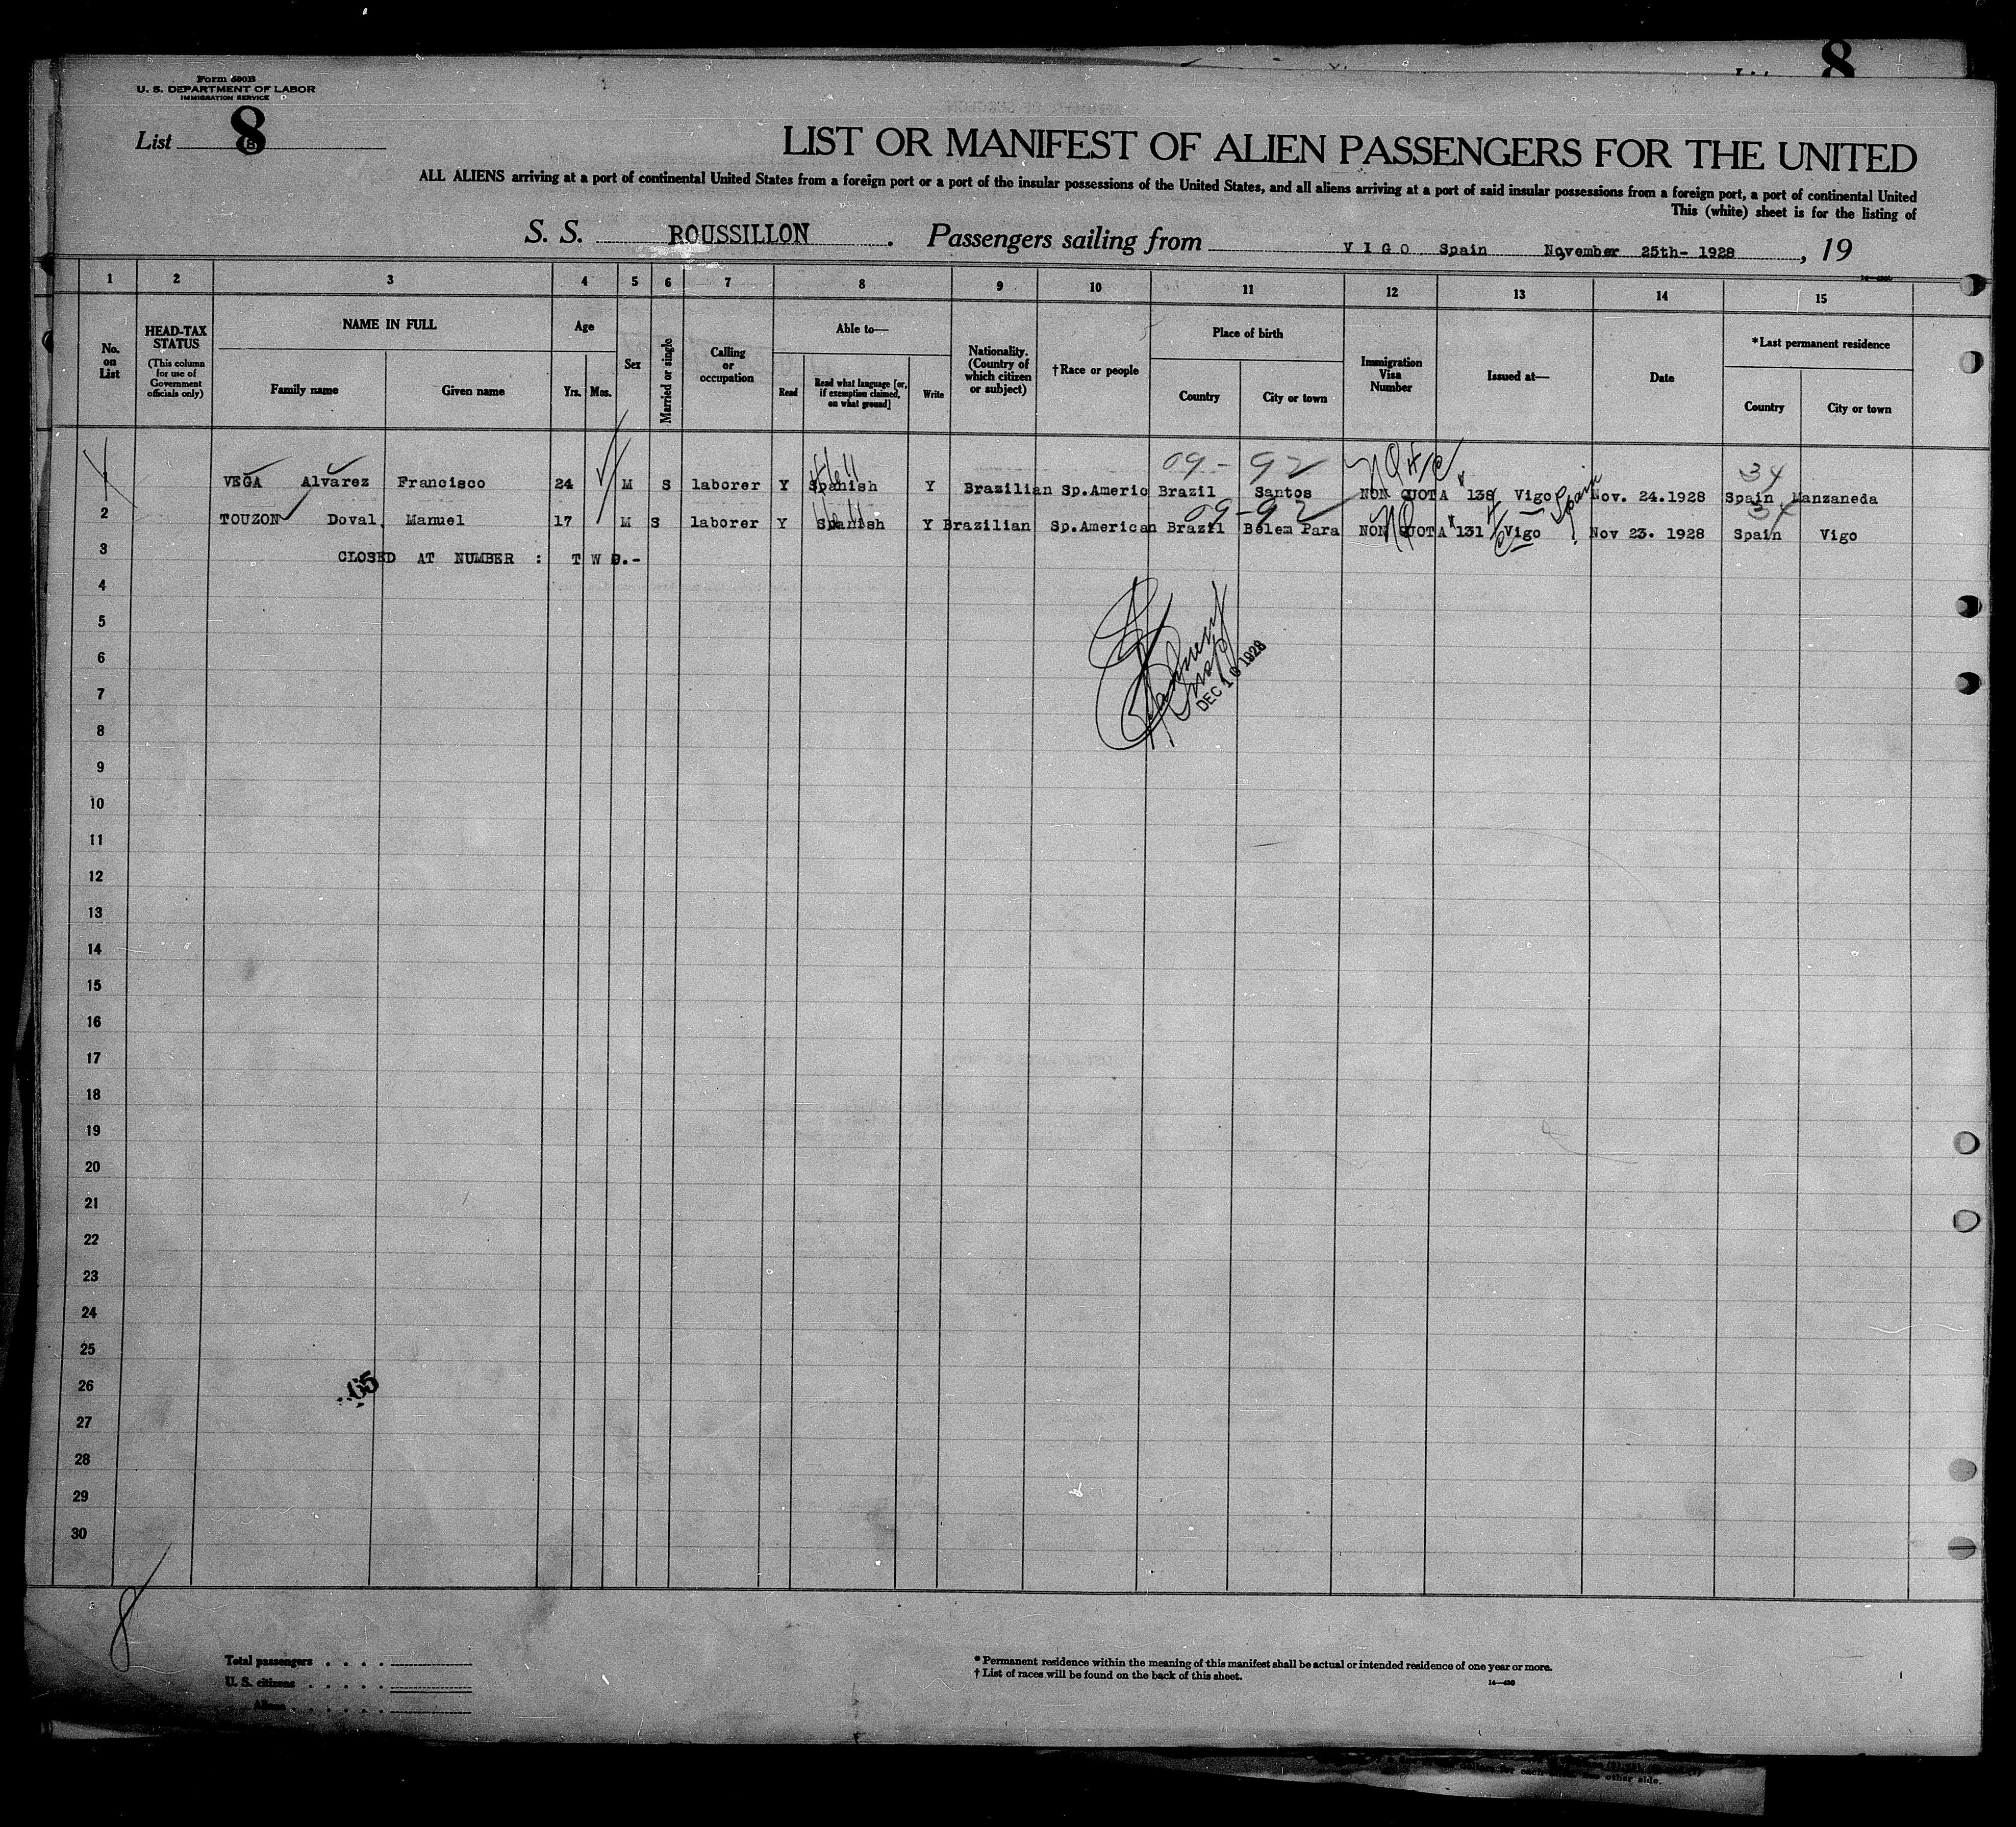 8
Form 500B
U. S. DEPARTMENT OF LABOR
IMMIGRATION SERVICE
List 8
LIST OR MANIFEST OF ALIEN PASSENGERS FOR THE UNITED
ALL ALIENS arriving at a port of continental United States from a foreign port or a port of the insular possessions of the United States, and all aliens arriving at a port of said insular possessions from a foreign port, a port of continental United
This (white) sheet is for the listing of
S. S. ROUSSILLON . Passengers sailing from VIGO Spain November 25th- 1928 , 19
1 2 3 4 5 6 7 8 9 10 11 12 13 14 15
No. on List
HEAD-TAX STATUS
(This column for use of Government officials only)
NAME IN FULL
Family name
Given name
Age
Yrs.
Mos.
Sex
Married or single
Calling or occupation
Able to—
Read
Read what language [or, if exemption claimed, on what ground]
Write
Nationality. (Country of which citizen or subject)
†Race or people
Place of birth
Country
City or town
Immigration Visa Number
Issued at—
Date
*Last permanent residence
Country
City or town
09- 92 34
1 VEGA Alvarez Francisco 24 M S laborer Y Spanish Y Brazilian Sp.Americ Brazil Santos NON QUOTA 138 Vigo Spain Nov. 24.1928 Spain Manzaneda
09-92 34
2 TOUZON Doval, Manuel 17 M S laborer Y Spanish Y Brazilian Sp.American Brazil Belem Para NON QUOTA 131 Vigo Nov 23. 1928 Spain Vigo
3 CLOSED AT NUMBER : T W O.-
4
5
6
DEC 10 1928
7
8
9
10
11
12
13
14
15
16
17
18
19
20
21
22
23
24
25
26
65
27
28
29
30
8
Total passengers . . . .
U. S. citizens . . . . .
Aliens . . . . . .
* Permanent residence within the meaning of this manifest shall be actual or intended residence of one year or more.
† List of races will be found on the back of this sheet.
other side.